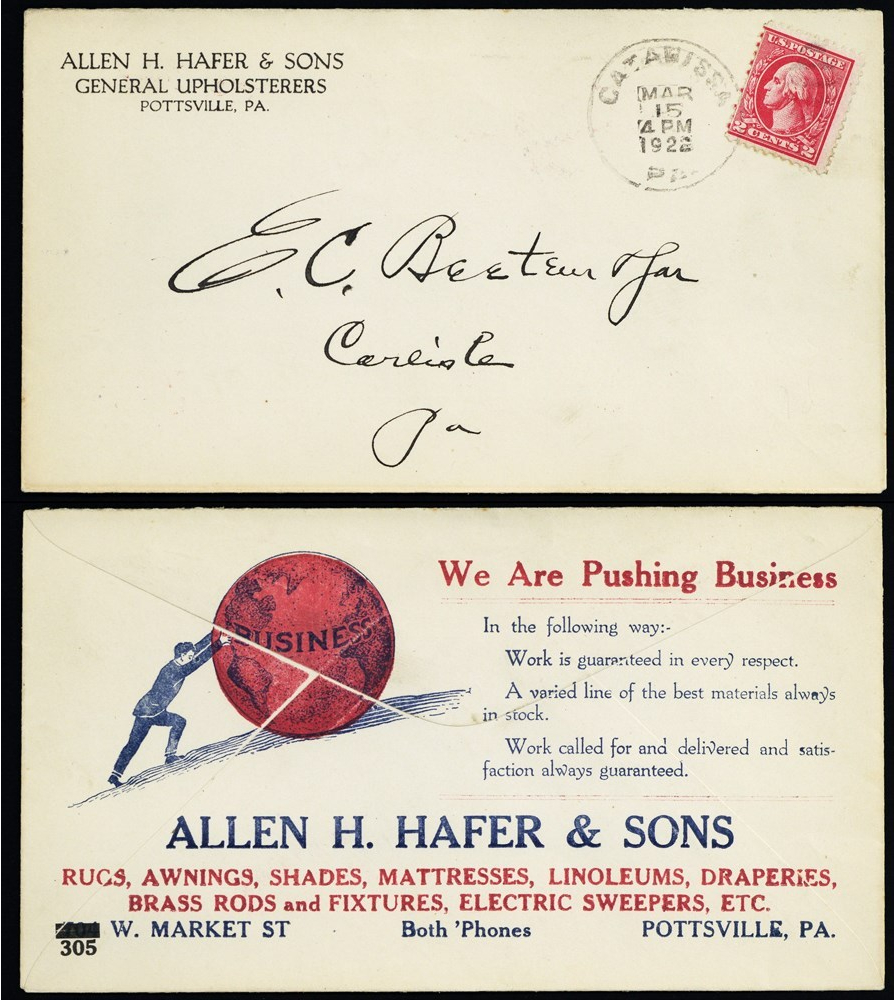 ALLEN H. HAFER & SONS
GENERAL UPHOLSTERERS
POTTSVILLE, PA.
CATAWISSA
MAR
15
4 PM
1922
PA.
U.S. POSTAGE
2 CENTS 2
E. C. Beeteur & Jar
Carlisle
Pa
BUSINESS
We Are Pushing Business
In the following way:-
Work is guaranteed in every respect.
A varied line of the best materials always
in stock.
Work called for and delivered and satis-
faction always guaranteed.
ALLEN H. HAFER & SONS
RUGS, AWNINGS, SHADES, MATTRESSES, LINOLEUMS, DRAPERIES,
BRASS RODS and FIXTURES, ELECTRIC SWEEPERS, ETC.
W. MARKET ST Both 'Phones POTTSVILLE, PA.
305